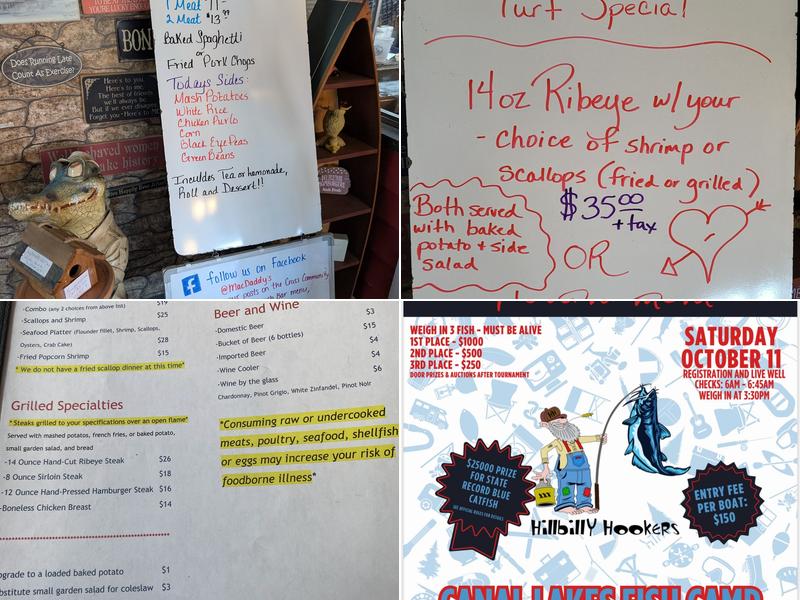 Does Running Late
Count As Exercise?
BON
Here's to you,
Here's to me,
The best of friends
we'll always be.
But if we ever disagree,
Forget you - Here's to Me
1 Meat $11
2 Meat $13.99
Baked Spaghetti
or
Fried Pork Chops
Todays Sides:
Mash Potatoes
White Rice
Chicken Purlo
Corn
Black Eye Peas
Green Beans
Inculdes Tea or lemonade,
Roll and Dessert!!
follow us on Facebook
@MacDaddys
posts on the Cross Community
Bar menu,
Turf Special
14oz Ribeye w/ your
- choice of shrimp or
scallops (fried or grilled)
$35.00
+ tax
Both served
with baked
potato + side
salad
OR
-Combo (any 2 choices from above list) $19
-Scallops and Shrimp $25
-Seafood Platter (Flounder fillet, Shrimp, Scallops,
Oysters, Crab Cake) $28
-Fried Popcorn Shrimp $15
* We do not have a fried scallop dinner at this time*
Grilled Specialties
* Steaks grilled to your specifications over an open flame*
Served with mashed potatoes, french fries, or baked potato,
small garden salad, and bread
-14 Ounce Hand-Cut Ribeye Steak $26
-8 Ounce Sirloin Steak $18
-12 Ounce Hand-Pressed Hamburger Steak $16
-Boneless Chicken Breast $14
grade to a loaded baked potato $1
bstitute small garden salad for coleslaw $3
Beer and Wine
-Domestic Beer $3
-Bucket of Beer (6 bottles) $15
-Imported Beer $4
-Wine Cooler $4
-Wine by the glass $6
Chardonnay, Pinot Grigio, White Zinfandel, Pinot Noir
*Consuming raw or undercooked
meats, poultry, seafood, shellfish
or eggs may increase your risk of
foodborne illness*
WEIGH IN 3 FISH - MUST BE ALIVE
1ST PLACE - $1000
2ND PLACE - $500
3RD PLACE - $250
DOOR PRIZES & AUCTIONS AFTER TOURNAMENT
SATURDAY
OCTOBER 11
REGISTRATION AND LIVE WELL
CHECKS: 6AM - 6:45AM
WEIGH IN AT 3:30PM
$25000 PRIZE
FOR STATE
RECORD BLUE
CATFISH
SEE OFFICIAL RULES FOR DETAILS
HillBillY HOOkERS
ENTRY FEE
PER BOAT:
$150
CANAL LAKES FISH CAMP